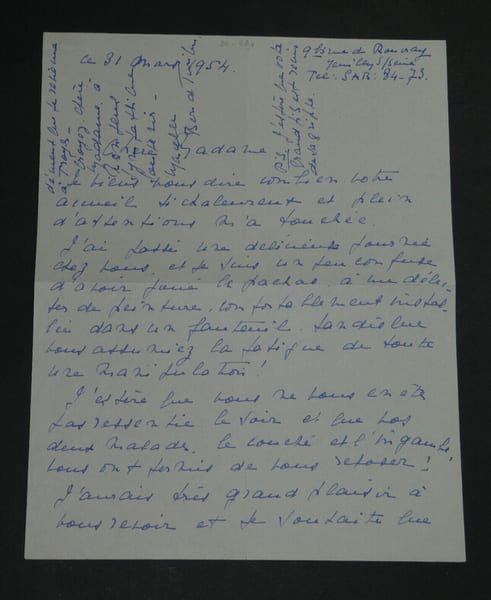 ce 31 Mars 1954.
9 bis rue de Rouvray
Neuilly s/Seine
Tel: SAB: 84-73.
Madame
Je viens vous dire combien votre
accueil si chaleureux et plein
d'attentions m'a touchée.
J'ai passé une délicieuse journée
chez vous, et je suis un peu confuse
d'avoir joué le pachas, à me délec-
ter de peinture, confortablement instal-
lée dans un fauteuil, tandis que
vous assumiez la fatigue de toute
une manipulation!
J'espère que vous ne vous en êtes
pas ressentie le soir et que vos
deux malades, le couché et l'ingambe,
vous ont permis de vous reposer!
J'aurais très grand plaisir à
vous revoir et je souhaite que
à Troyes.
Croyez chère
Madame, à
PS: J'espère que votre
grand fils est remis
de sa grippe.